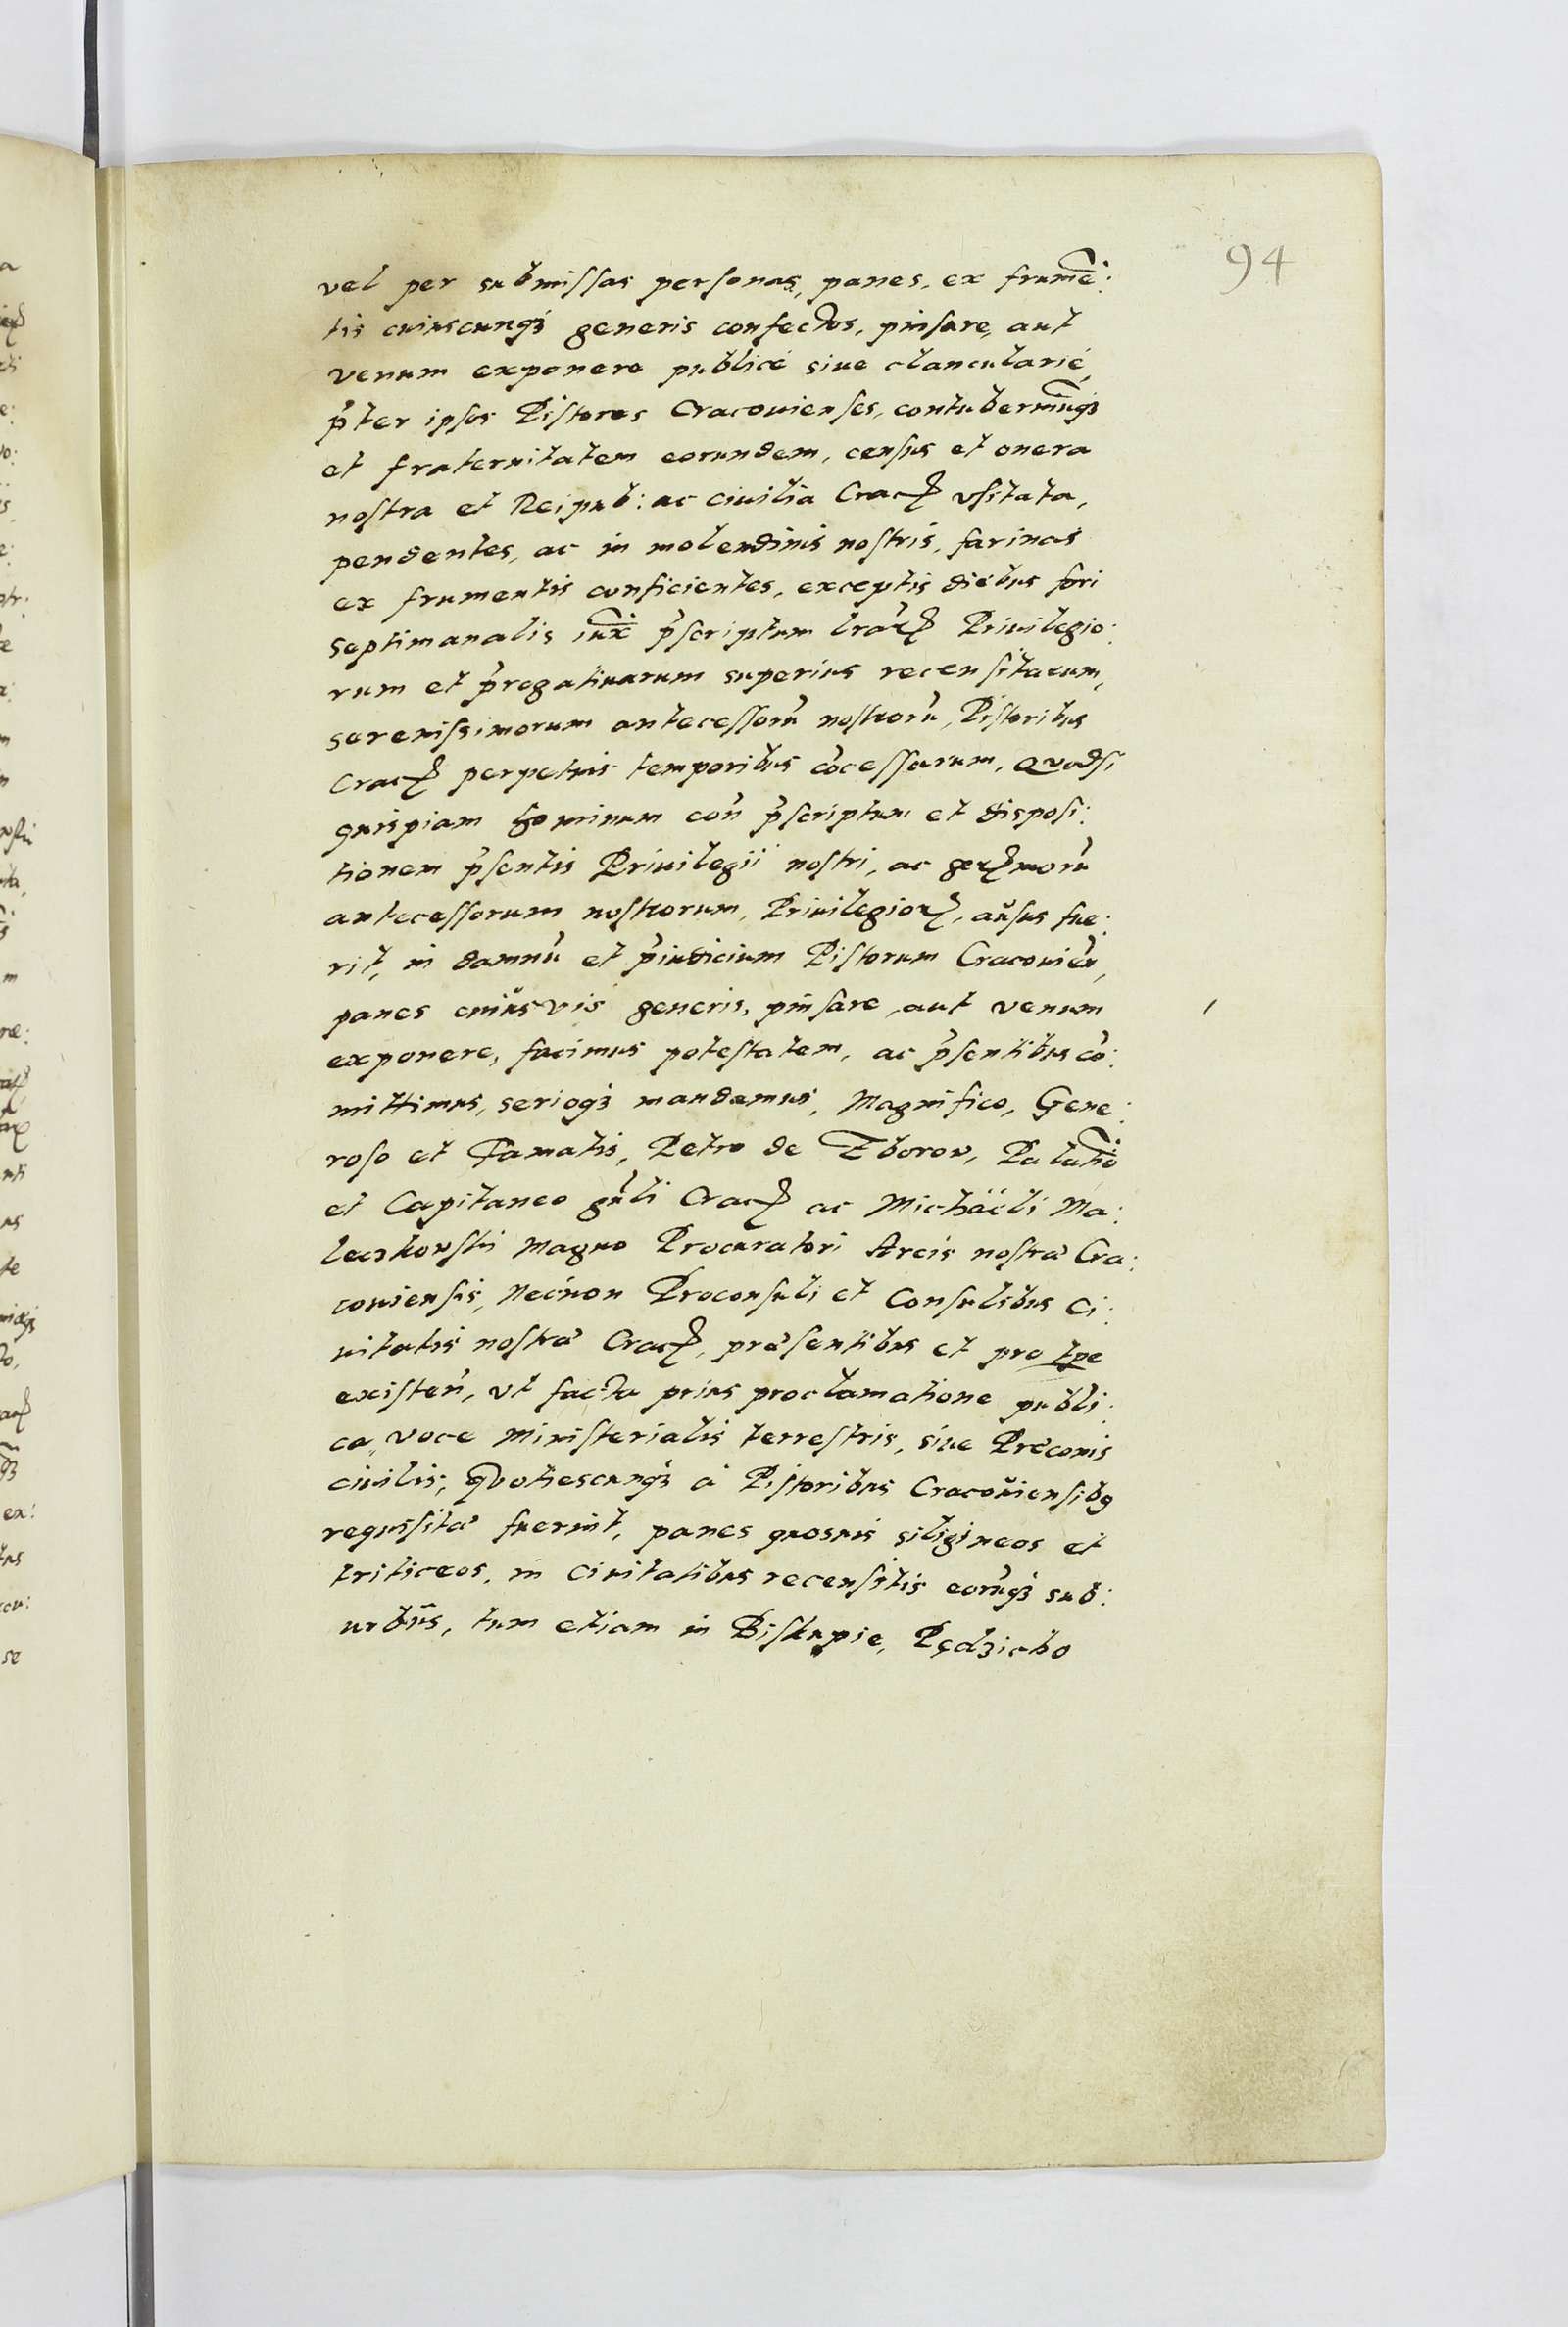 94
vel per submissas personas, panes, ex frumē:
tis cuiuscunqʒ generis confectos, pinsare, aut
venum exponere publicè siue clanculariè,
p̃ter ipsos Pistores Cracouienses, contuberniũqʒ
et fraternitatem eorundem, census et onera
nostra et Reipub: ac ciuilia Cracꝭ vsitata,
pendentes, ac in molendinis nostris, farinas
ex frumentis conficientes, exceptis diebus fori
septimanalis iux̃ p̃scriptum lraꝝ Priuilegio:
rum et p̃rogatiuarum superius recensitarum,
serenissimorum antecessorũ nostrorũ, Pistoribus
Cracꝭ perpetuis temporibus cõcessarum, Quodsi
quispiam hominum coñ p̃scriptum et disposi:
tionem p̃sentis Priuilegii nostri, ac seꝝmorũ
antecessorum nostrorum, Priuilegioꝝ, ausus fue:
rit, in damnũ et p̃iudicium Pistorum Cracouieñ,
panes cuiusvis generis, pinsare, aut venum
exponere, facimus potestatem, ac p̃sentibus cõ:
mittimus, serioqʒ mandamus, Magnifico, Gene:
roso et Famatis, Petro de Zborow, Palatiõ
et Capitaneo gñli Cracꝭ ac Michäeli Ma:
leczkowski Magno Procuratori Arcis nostræ Cra:
couiensis, Necnon Proconsuli et Consulibus Ci:
uitatis nostræ Cracꝭ, præsentibus et pro tpe
existeñ, vt facta prius proclamatione publi:
ca, voce Ministerialis terrestris, siue Præconis
ciuilis, quotiescunqʒ à Pistoribus Cracouiensibꝰ
requisitæ fuerint, panes quosuis siligineos et
triticeos, in Ciuitatibus recensitis eorũqʒ sub:
urbiis, tum etiam in Biskupie, Pędzicho